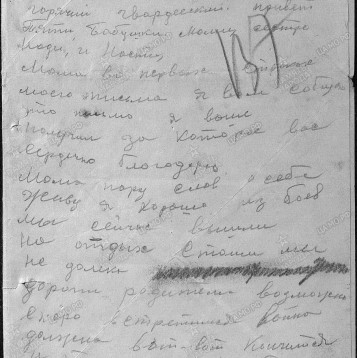 горячий гвардейский привет
Тяти, Бабушки Мами, сестре
Нади, и Насти,
Мама во первых строках
моего письма я вам сообщу
что письмо я ваше
получил за которое вас
сердечно благодарю
Мама пару слов о себе
Живу я хорошо из боев
мы сейчас вышли
на отдых Стоим мы
не далеко
дорогие родители возможно
скоро встретимся война
должна вот-вот кончится